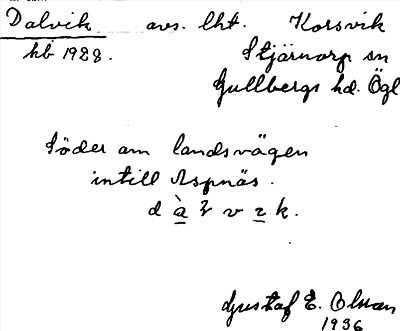 Dalvik avs. lht. Korsvik
hb 1928. Stjärnorp sn
Gullbergs hd. Ögl
Söder om landsvägen
intill Aspnäs.
d à l v ı k.
Gustaf E. Olson
1936